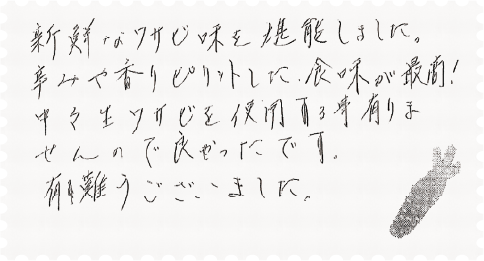 新鮮なワサビ味を堪能しました。
辛みや香りピリットした食味が最高!
中々生ワサビを使用する事有りま
せんので良かったです。
有り難うございました。